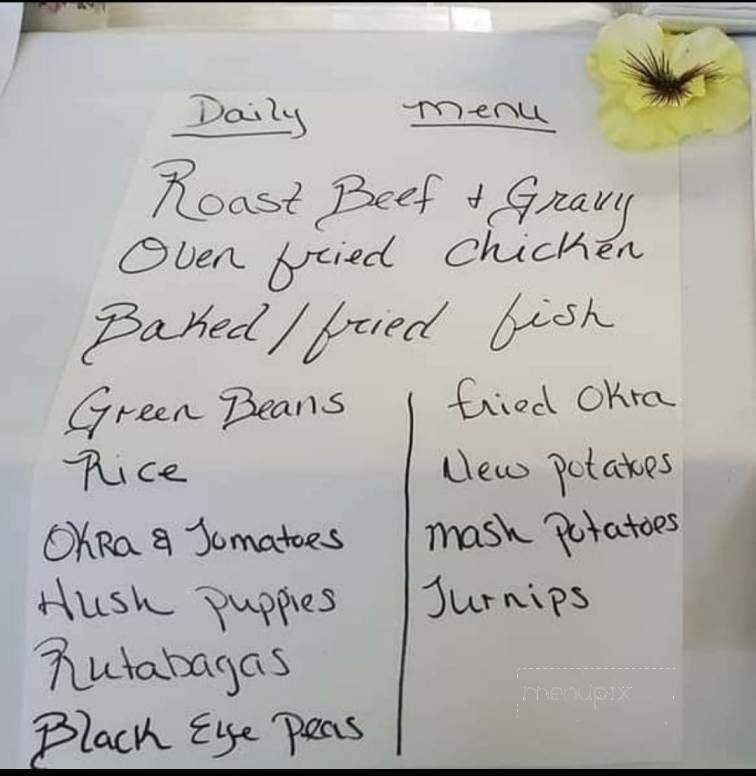 Daily Menu
Roast Beef & Gravy
Oven fried chicken
Baked/fried fish
Green Beans
Rice
Okra & Tomatoes
Hush puppies
Rutabagas
Black Eye Peas
fried Okra
New potatoes
mash Potatoes
Turnips
menupix